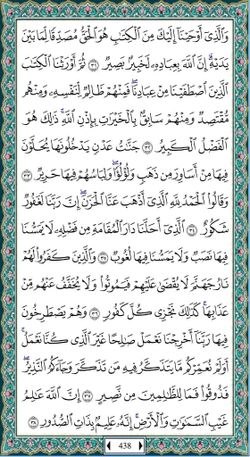 وَٱلَّذِىٓ أَوْحَيْنَآ إِلَيْكَ مِنَ ٱلْكِتَـٰبِ هُوَ ٱلْحَقُّ مُصَدِّقًا لِّمَا بَيْنَ
يَدَيْهِ ۗ إِنَّ ٱللَّهَ بِعِبَادِهِۦ لَخَبِيرٌۢ بَصِيرٌ ٣١ ثُمَّ أَوْرَثْنَا ٱلْكِتَـٰبَ
ٱلَّذِينَ ٱصْطَفَيْنَا مِنْ عِبَادِنَا ۖ فَمِنْهُمْ ظَالِمٌ لِّنَفْسِهِۦ وَمِنْهُم
مُّقْتَصِدٌ وَمِنْهُمْ سَابِقٌۢ بِٱلْخَيْرَٰتِ بِإِذْنِ ٱللَّهِ ۚ ذَٰلِكَ هُوَ
ٱلْفَضْلُ ٱلْكَبِيرُ ٣٢ جَنَّـٰتُ عَدْنٍ يَدْخُلُونَهَا يُحَلَّوْنَ
فِيهَا مِنْ أَسَاوِرَ مِن ذَهَبٍ وَلُؤْلُؤًا ۖ وَلِبَاسُهُمْ فِيهَا حَرِيرٌ ٣٣
وَقَالُوا۟ ٱلْحَمْدُ لِلَّهِ ٱلَّذِىٓ أَذْهَبَ عَنَّا ٱلْحَزَنَ ۖ إِنَّ رَبَّنَا لَغَفُورٌ
شَكُورٌ ٣٤ ٱلَّذِىٓ أَحَلَّنَا دَارَ ٱلْمُقَامَةِ مِن فَضْلِهِۦ لَا يَمَسُّنَا
فِيهَا نَصَبٌ وَلَا يَمَسُّنَا فِيهَا لُغُوبٌ ٣٥ وَٱلَّذِينَ كَفَرُوا۟ لَهُمْ
نَارُ جَهَنَّمَ لَا يُقْضَىٰ عَلَيْهِمْ فَيَمُوتُوا۟ وَلَا يُخَفَّفُ عَنْهُم مِّنْ
عَذَابِهَا ۚ كَذَٰلِكَ نَجْزِى كُلَّ كَفُورٍ ٣٦ وَهُمْ يَصْطَرِخُونَ
فِيهَا رَبَّنَآ أَخْرِجْنَا نَعْمَلْ صَـٰلِحًا غَيْرَ ٱلَّذِى كُنَّا نَعْمَلُ ۚ
أَوَلَمْ نُعَمِّرْكُم مَّا يَتَذَكَّرُ فِيهِ مَن تَذَكَّرَ وَجَآءَكُمُ ٱلنَّذِيرُ ۖ
فَذُوقُوا۟ فَمَا لِلظَّـٰلِمِينَ مِن نَّصِيرٍ ٣٧ إِنَّ ٱللَّهَ عَـٰلِمُ
غَيْبِ ٱلسَّمَـٰوَٰتِ وَٱلْأَرْضِ ۚ إِنَّهُۥ عَلِيمٌۢ بِذَاتِ ٱلصُّدُورِ ٣٨
438